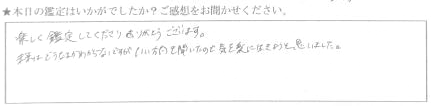 ★本日の鑑定はいかがでしたか？ご感想をお聞かせください。
楽しく鑑定してくださりありがとうございます。
まずはどうなるかわからないですが いい方向を聞いたので気を楽に思いました。